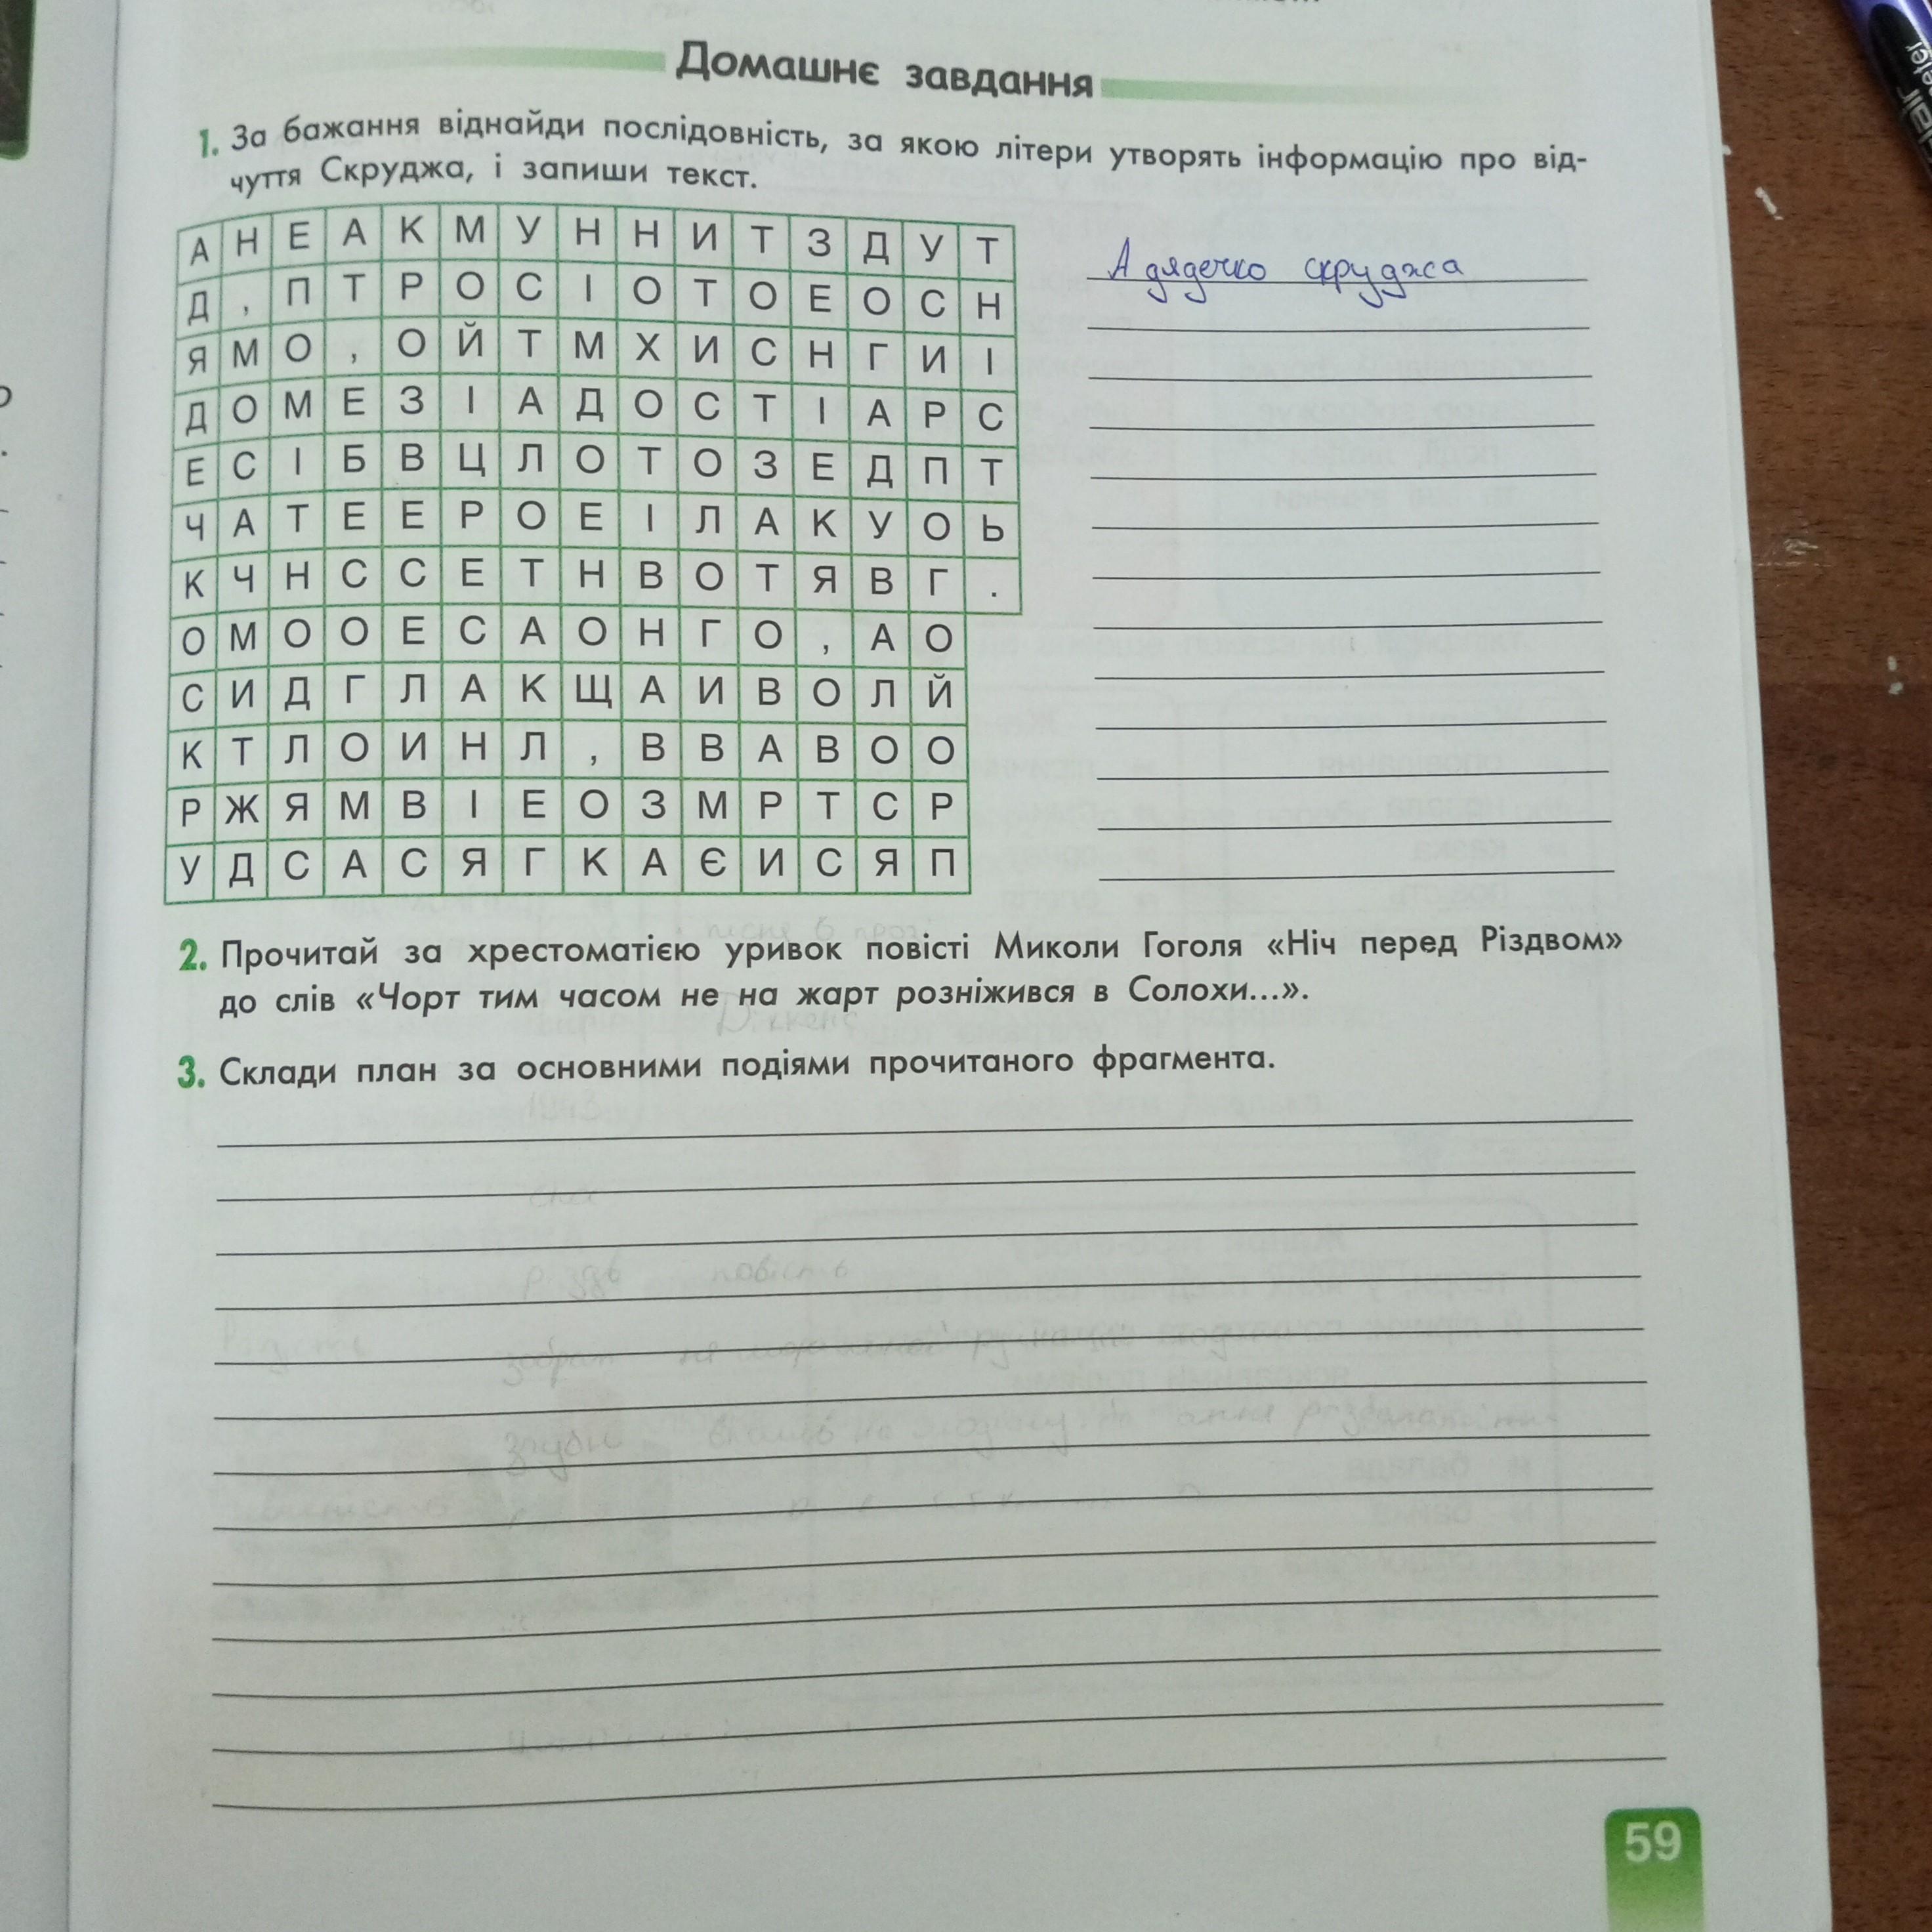 Домашнє завдання
1. За бажання віднайди послідовність, за якою літери утворять інформацію про від-
чуття Скруджа, і запиши текст.
А Н Е А К М У Н Н И Т З Д У Т
Д , П Т Р О С І О Т О Е О С Н
Я М О , О Й Т М Х И С Н Г И І
Д О М Е З І А Д О С Т І А Р С
Е С І Б В Ц Л О Т О З Е Д П Т
Ч А Т Е Е Р О Е І Л А К У О Ь
К Ч Н С С Е Т Н В О Т Я В Г .
О М О О Е С А О Н Г О , А О
С И Д Г Л А К Щ А И В О Л Й
К Т Л О И Н Л , В В А В О О
Р Ж Я М В І Е О З М Р Т С Р
У Д С А С Я Г К А Є И С Я П
А дядечко скруджа
2. Прочитай за хрестоматією уривок повісті Миколи Гоголя «Ніч перед Різдвом»
до слів «Чорт тим часом не на жарт розніжився в Солохи...».
3. Склади план за основними подіями прочитаного фрагмента.
59